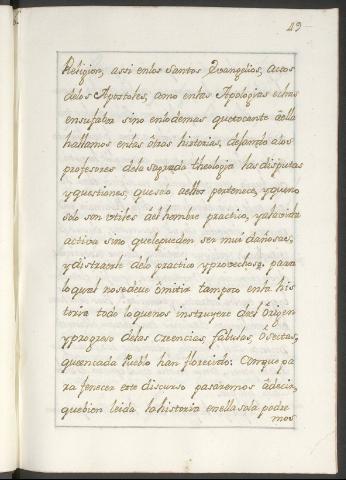 49
Religion, assi enlos Santos Evangelios, Actos
delos Apostoles, como enlas Apologias echas
ensufabor sino enlodemas quetocante àella
hallamos enlas òtras historias, dejando alos
profesores dela sagrada theologia las disputas
y questiones, queaò aellos pertenece, y queno
solo son vtiles àl hombre practico, y alavida
activa sino quelepueden ser mui dañosas,
y distraerle delo practico y provechoso. para
loqual nosedeve òmitir tampoco enla his
toria todo loquenos instruyere del Origen
y progreso delas creencias, fabulas, ò sectas,
queencada Pueblo han florecido: Conque pa
ra fenecer este discurso pasaremos àdecir,
quebien leida lahistoria enella sola podre
mos